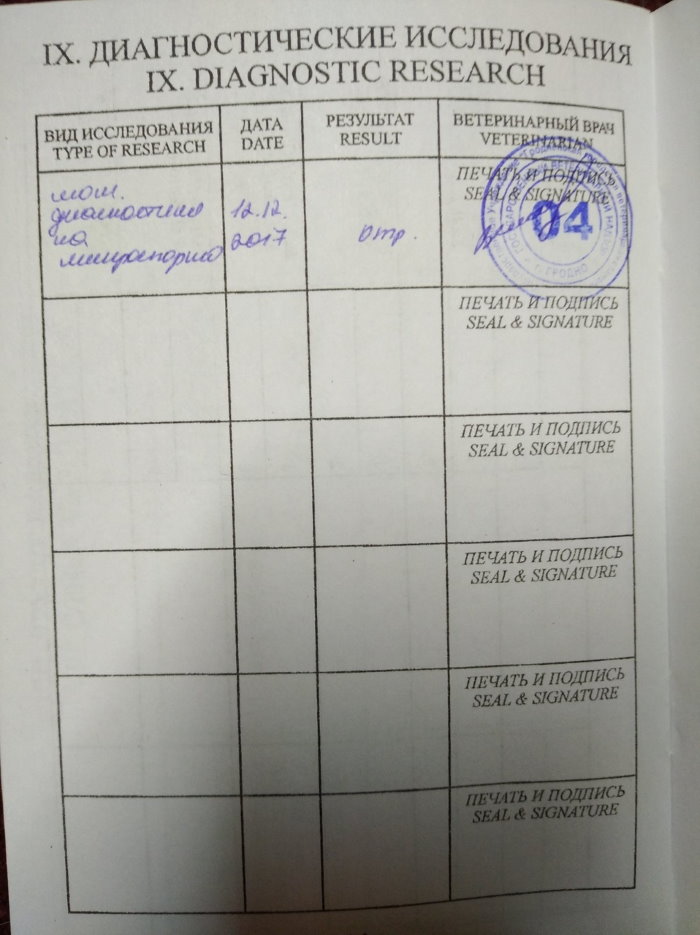 IX. ДИАГНОСТИЧЕСКИЕ ИССЛЕДОВАНИЯ
IX. DIAGNOSTIC RESEARCH
ВИД ИССЛЕДОВАНИЯ
TYPE OF RESEARCH
ДАТА
DATE
РЕЗУЛЬТАТ
RESULT
ВЕТЕРИНАРНЫЙ ВРАЧ
VETERINARIAN
диагностика
на
микроспорию
12.12.
2017
отр.
ПЕЧАТЬ И ПОДПИСЬ
SEAL & SIGNATURE
04
г. ГРОДНО
ПЕЧАТЬ И ПОДПИСЬ
SEAL & SIGNATURE
ПЕЧАТЬ И ПОДПИСЬ
SEAL & SIGNATURE
ПЕЧАТЬ И ПОДПИСЬ
SEAL & SIGNATURE
ПЕЧАТЬ И ПОДПИСЬ
SEAL & SIGNATURE
ПЕЧАТЬ И ПОДПИСЬ
SEAL & SIGNATURE